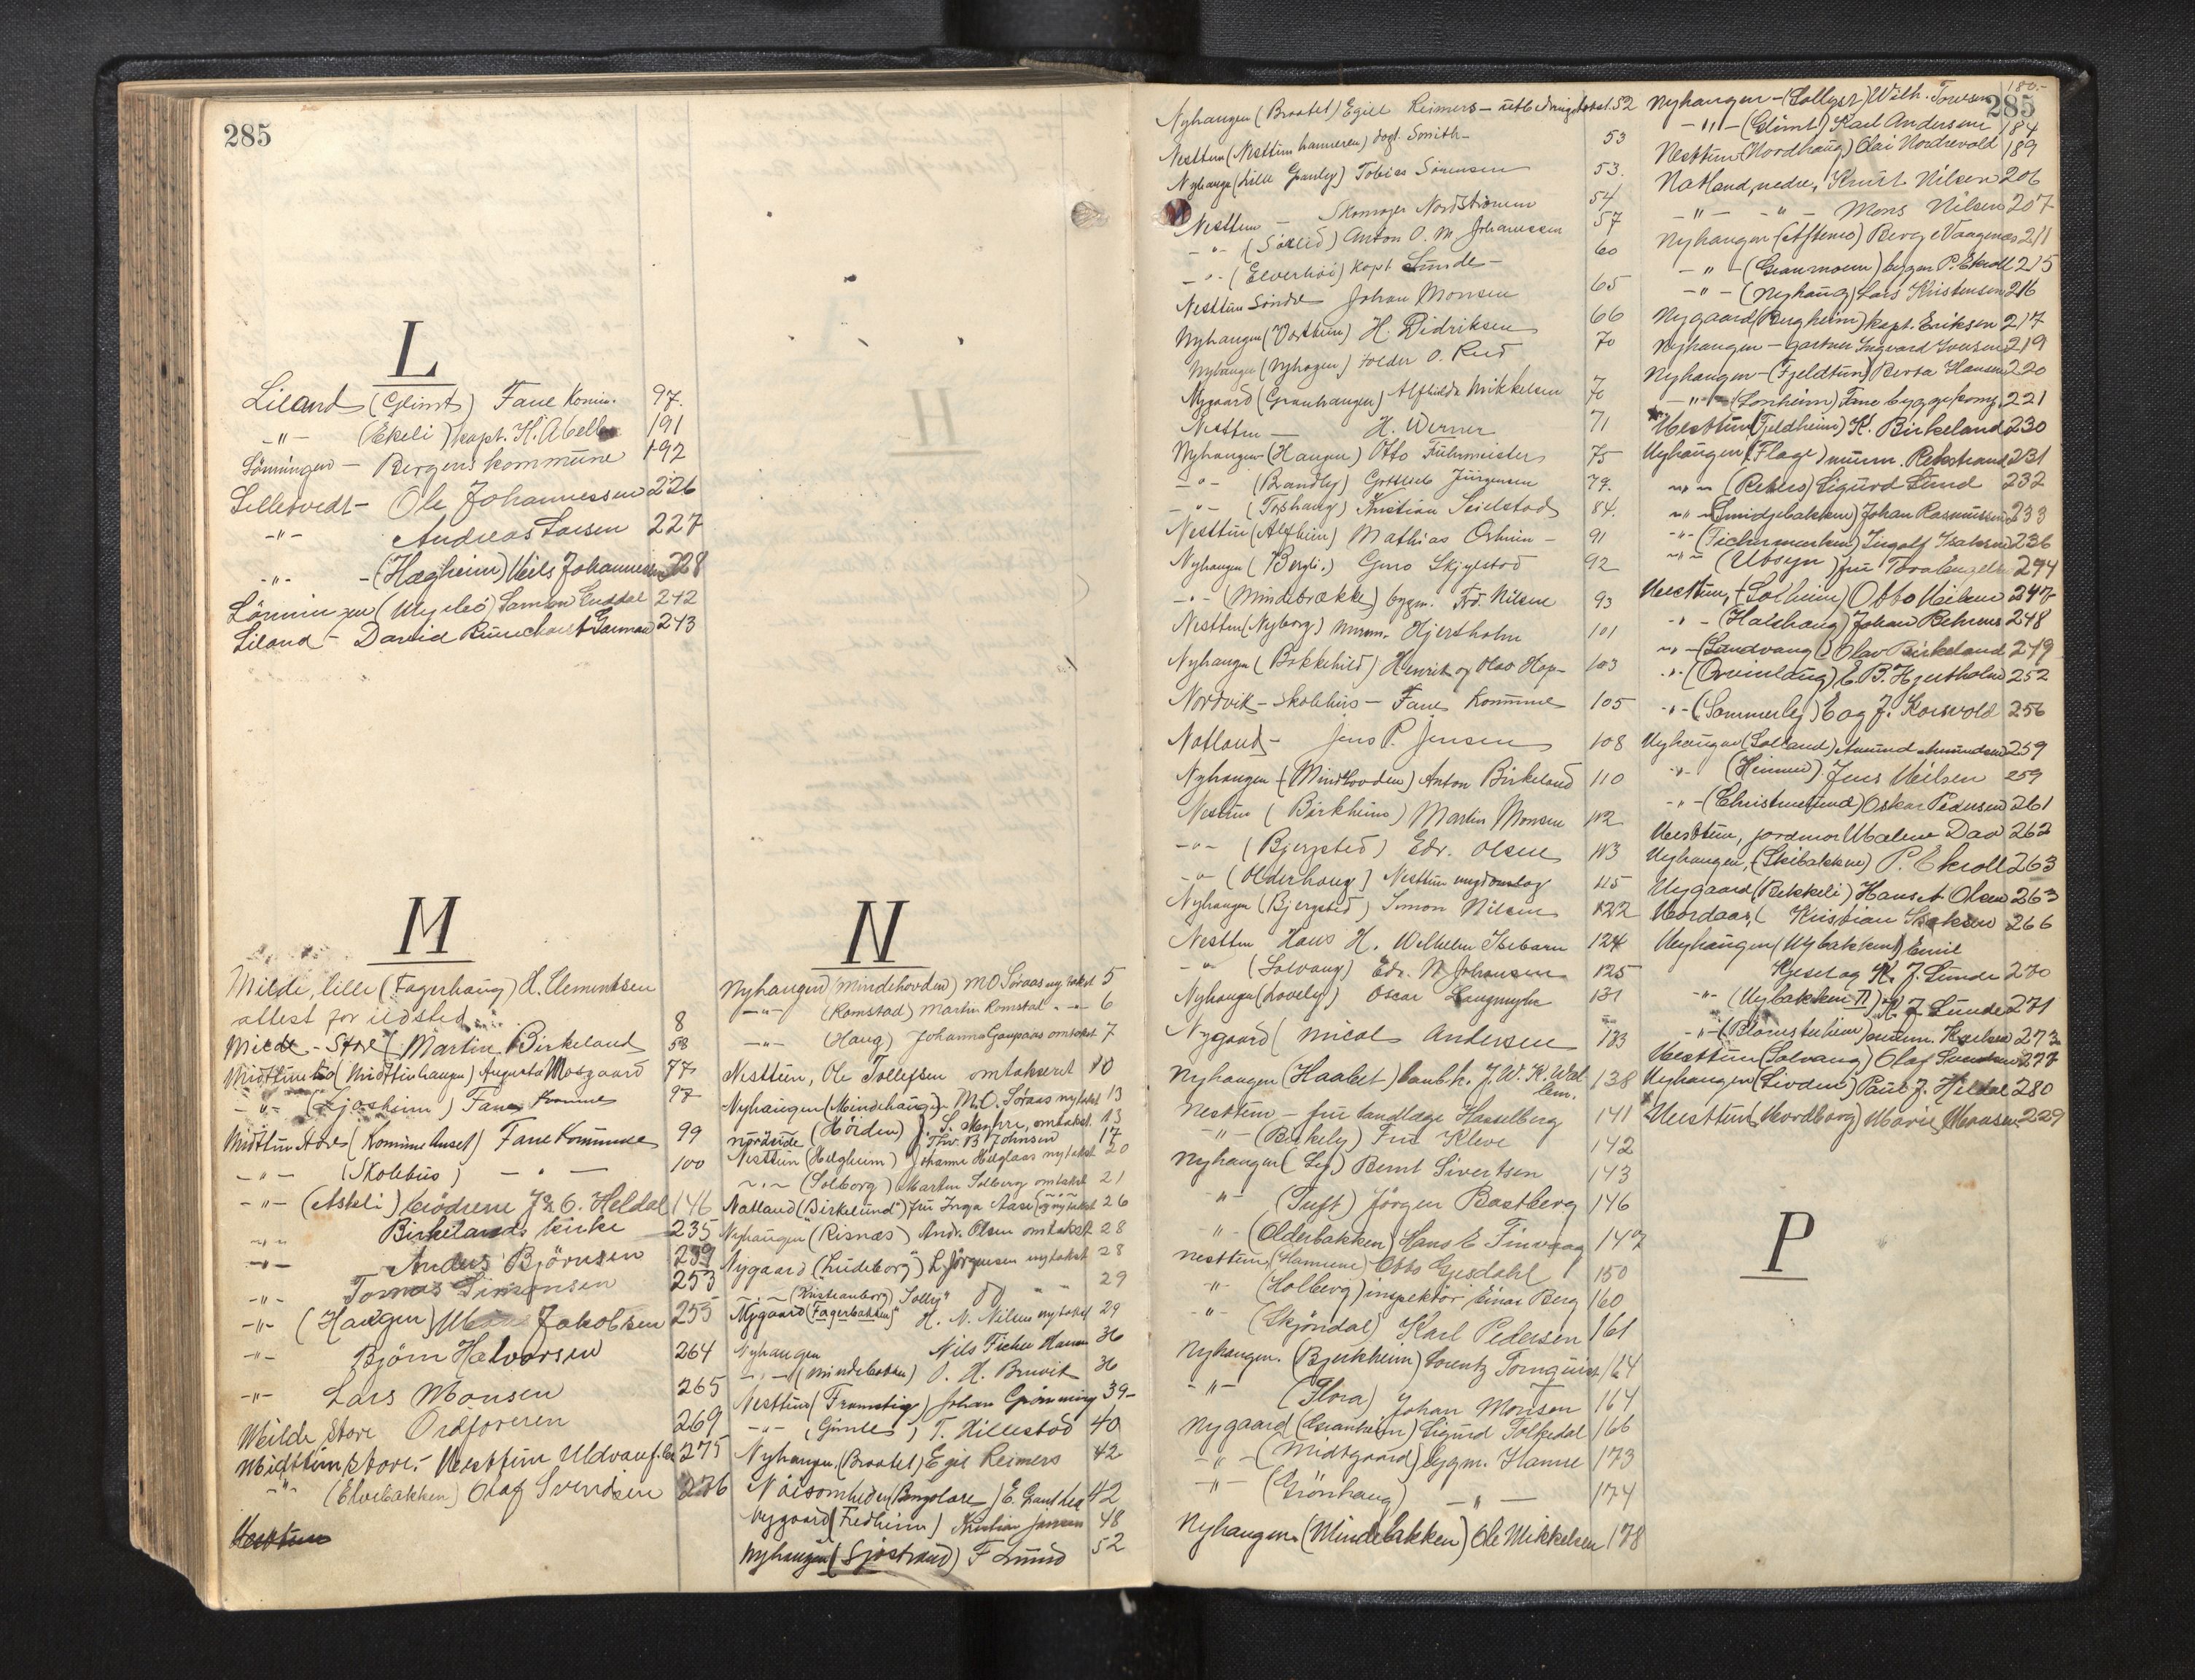 285
L
Liland (Glimt) Fane Komm. 97.
-"- (Ekeli) kapt. K. Abell 191
Lönningen - Bergens kommune 192
Lilletvedt - Ole Johannessen 226
-"- Andreas Larsen 227
-"- - (Hægheim) Nils Johannessen 228
Lönningen 242
Liland - David 243
M
Milde, lille (Fagerhaug) H. Clementsen
attest for ildsted 8
Milde - Store (Martin Birkeland 58
Midttun (Midttunhaugen) Augusta Mosgaard 77
-"- Fane Komme 97
Midttun store (Komme huset) Fane Kommune 99
-"- (Skolehus) - " - 100
-"- (Askeli) brödrene J & O. Heldal 146
-"- Birkelands kirke 235
-"- Anders Björnsen 239
-"- Tomas Simonsen 253
-"- (Haugen) Jakobsen 255
-"- Björn Halvorsen 264
-"- Lars Monsen 265
Milde Store Ordföreren 269
Midttun, store - Nesttun 275
-"- (Elvebakken) Olaf Svendsen 276
Nesttun
N
Nyhaugen (Mindehovden) M O Søraas ny takst 5
-"- (Romstad) Martin Romstad - " - 6
-"- (Haug) Johanna Gaupaas omtakst 7
Nesttun, Ole Tollefsen omtakseret 10
Nyhaugen (Mindehaugen) M. O. Søraas nytakst 13
(Høiden) omtakst. 13
nordside Thv. B. Johnsen 17
Nesttun (Helgheim) Johanne Helglaas nytakst 20
-"- (Solborg) Martin Solberg omtakst 21
Natland (Birkelund) fru Inga Aase nytakst 26
Nyhaugen (Risnæs) Andr. Olsen omtakst 28
Nygaard (Ludeborg) L. Jörgensen nytakst 28
-"- (Kristianborg) 29
Nygaard (Fagerbakken) H. N. Nilsen nytakst 29
Nyhaugen Nils Ficher Hansen 36
-"- (Mindebakken) O. H. Bruvik 36
Nesttun (Framstig) Johan Grönning 39-
-"- (Gimle) T. Hillestad 40
Nyhaugen (Braatet) Egil Reimers 42
Nöisomheden E. Grant Lea 42
Nygaard (Fredheim) Kristian Jansen 48
Nyhaugen (Sjøstrand) F Lund 52
285
Nyhaugen (Braatet) Egill Reimers - utbedringstakst. 52
Nesttun (Nesttun hammeren) dagl Smith - 53
Nyhauge (Lille Granly) Tobias Sörensen 53.
Nesttun - Skomager Nordström 54
-"- (Sollid) Anton O. M. Johannessen 57
-"- (Elverhöi) Kapt Lunde - 60
Nesttun Söndre Johan Monsen 65
Nyhaugen (Vortun) H. Didriksen 66
Nyhaugen (Nyhagen) tolder O. Rud 70
Nygaard (Granhaugen) Alfhilde Mikkelsen 70
Nesttun - H. Werner 71
Nyhaugen (Haugen) Otto Fuhrmeister 75
-"- (Brandly) Gottlieb Jürgensen 79.
-"- (Torshaug) Kristian Seielstad 84.
Nesttun (Alfheim) Mathias Osheim - 91
Nyhaugen (Bergli.) Guro Skjelstad 92
-"- (Mindebrække) bygm. Frd. Nilsen 93
Nesttun (Nyborg) murm. Hjertholm 101
Nyhaugen (Bakkehild) Henrik og Olav Hop - 103
Nordvik - Skolehus - Fane Kommune 105
Natland - Jens P. Jensen 108
Nyhaugen (Mindehovden) Anton Birkeland 110
Nesttun (Birkheim) Martin Monsen 112
-"- (Bjergsted) Edv. Olsen 113
-"- (Olderhaug) Nesttun ungdomslag 115
Nyhaugen (Bjergsted) Simon Nilsen 122
Nesttun Hans H. Wilhelm Isebarn 124
-"- (Solvang) Edv. N. Johansen 125
Nyhaugen (Lovely) Oscar Langmyhr 131
Nygaard (Nicol Andersen 133
Nyhaugen (Haabet) bankk. J. W. K. Wallem. 138
Nesttun - fru tandlæge Hasselberg 141
-"- (Birkely) Fru Kleve 142
Nyhaugen (Ly) Bernt Sivertsen 143
-"- (Tuft) Jörgen Bastberg 146
-"- (Olderbakken) Hans E Finvaag 147
Nesttun, (Hammen) Otto Gjesdahl 150
-"- (Holberg) inspektör Einar Berg 160
-"- (Skjöndal) Karl Pedersen 161
Nyhaugen (Bjerkheim) Lorentz Tornquist 164
-"- (Flora) Johan Monsen 164
Nygaard (Granheim) Sigurd Folkedal 166
-"- (Midtgaard) bygm. Hanse 173
-"- (Grönhaug) - " - 174
Nyhaugen (Mindebakken) Ole Mikkelsen 178
Nyhaugen - (Sollyst) Wilh. 180.-
-"- (Glimt) Karl Andersen 184
Nesttun (Nordhaug) Olai Nordrevold 189
Natland, nedre, Knut Nilsen 206
-"- -"- Mons Nilsen 207
Nyhaugen (Afstenes) Berge Vaagenæs 211
-"- (Granmoen) bygm P. Ekroll 215
-"- (Nyhaug) Lars Kristensen 216
Nygaard (Bergheim) kapt. Eriksen 217
Nyhaugen - gartner Ingvard Iversen 219
Nyhaugen - (Fjeldtun) Berta Hansen 220
-"- (Lonheim) Fane byggekomp. 221
Nesttun (Fjeldheim) K. Birkeland 230
Nyhaugen (Flage) murm. Rekstrand 231
-"- Sigurd Lund 232
-"- (Smidjebakken) Johan Rasmussen 233
-"- Ingolf Isaksen 236
-"- (Utsyn) fru Tora Engels 244
Nesttun, (Solheim) Otto Nilsen 247
-"- (Halshaug) Johan Behrens 248
-"- (Landvang) Olav Birkeland 249
-"- E. B. Hjertholm 252
-"- (Sommerly) E og J. Korsvold 256
Nyhaugen (Solland) Amund Amundsen 259
-"- (Heimen) Jens Nilsen 259
-"- (Christinelund) Oskar Pedersen 261
Nesttun, jordmor Malene Daa 262
Nyhaugen, (Skibakken) P. Ekroll 263
Nygaard (Bekkeli) Hans A Olsen 263
Nordaas, (Kristian Isaksen 266
Nyhaugen (Nybakken I) Emil
Kjeset og K. J. Lunde 270
-"- (Nybakken II) K. J. Lunde 271
-"- (Blomsterheim) murm. 273
Nesttun (Solvang) Olaf Svendsen 277
Nyhaugen (Livden) Paul J. Heldal 280
Nesttun (Nordborg) Marie Monsen 229
P